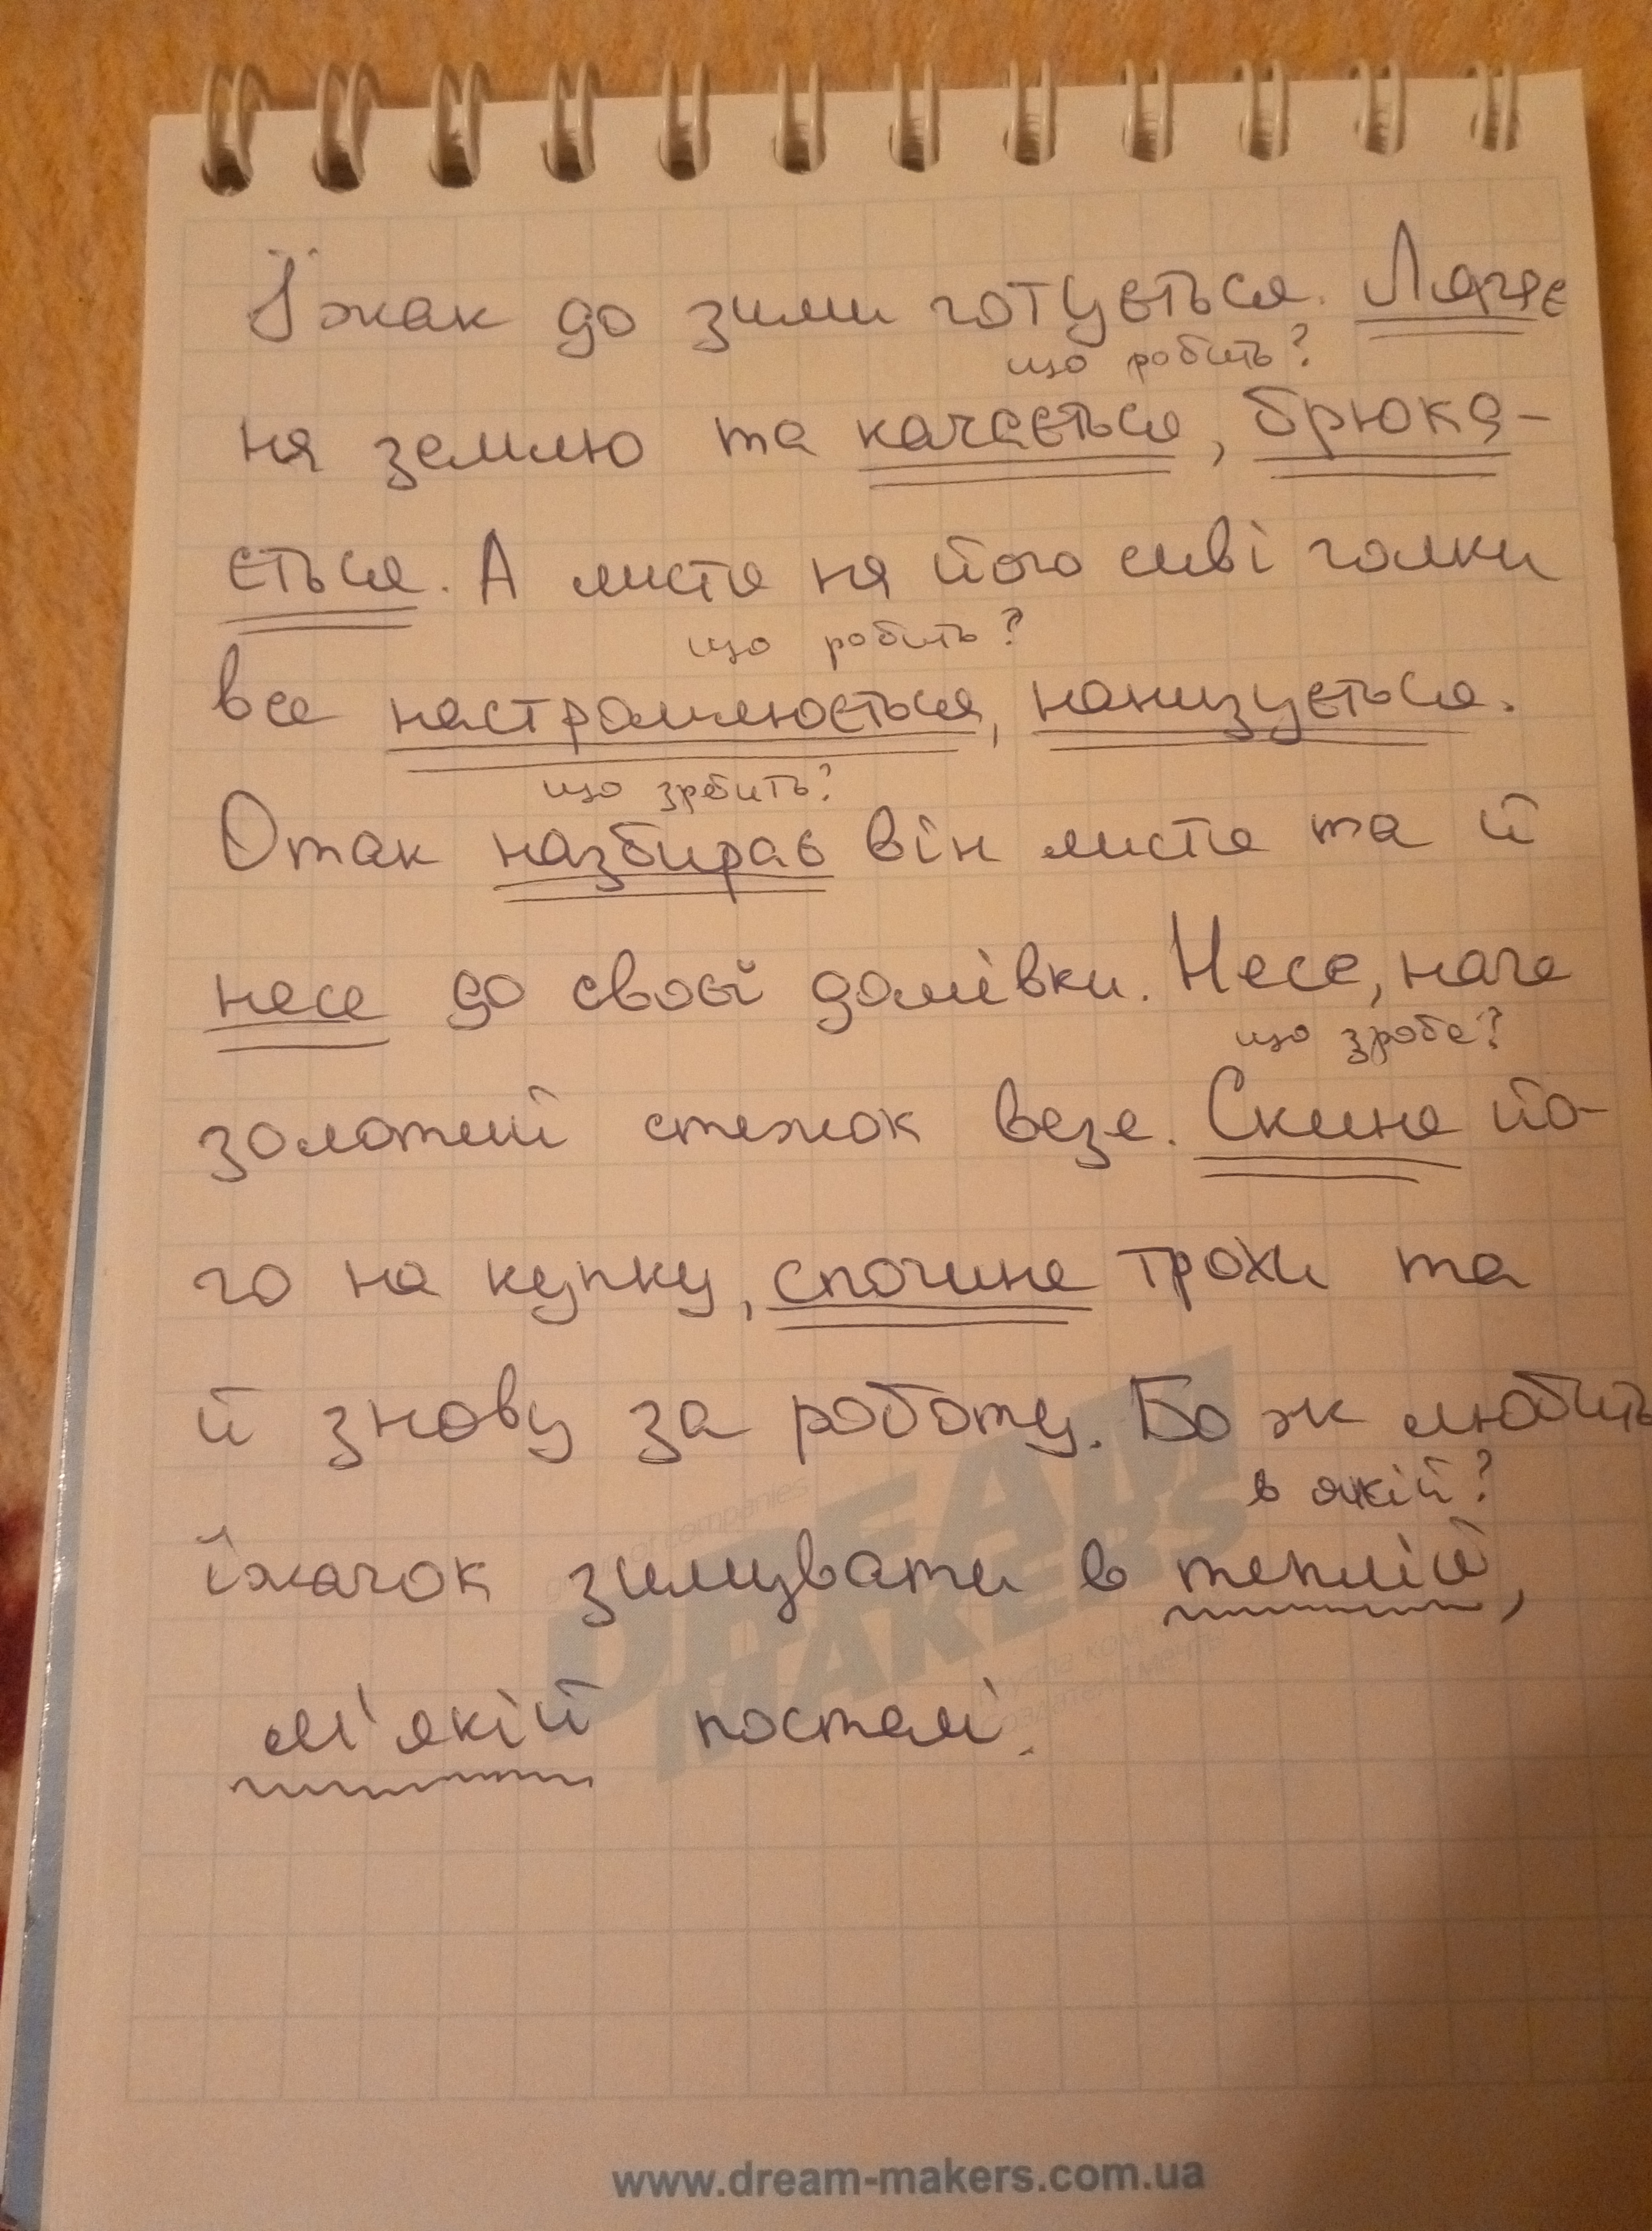 Їжак до зими готується. Лягає
що робить?
на землю та качається, брика-
ється. А листя на його сиві голки
що робить?
все настромлюється, нанизується.
що зробить?
Отак назбирає він листя та й
несе до своєї домівки. Несе, наче
що зробе?
золотий стежок везе. Скине йо-
го на купку, спочине трохи та
й знову за роботу. Бо ж любить
в якій?
їжачок зимувати в теплій,
м'якій постелі.
www.dream-makers.com.ua
DREAM
MAKERS